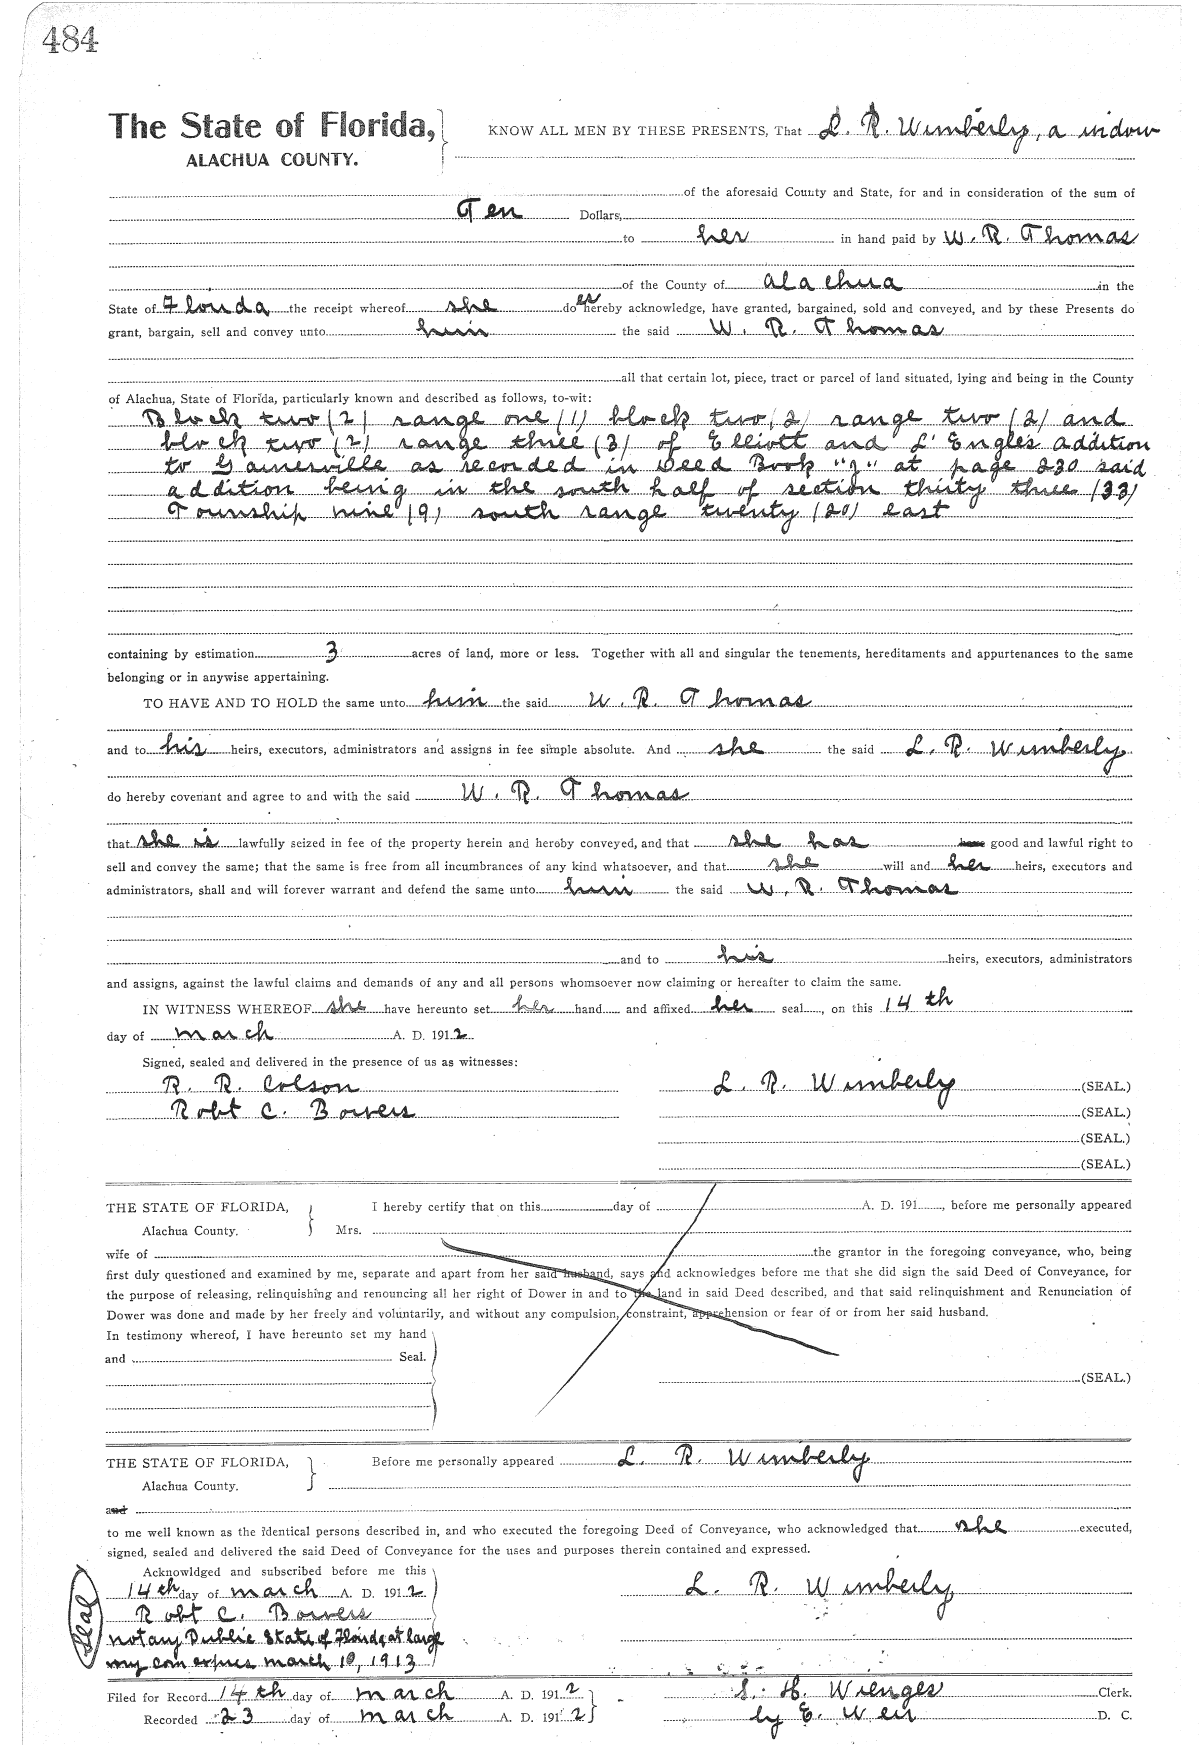 484
The State of Florida,
ALACHUA COUNTY.
KNOW ALL MEN BY THESE PRESENTS, That L. R. Wimberly, a widow
of the aforesaid County and State, for and in consideration of the sum of
Ten Dollars,
to her in hand paid by W. R. Thomas
of the County of Alachua in the
State of Florida the receipt whereof she does hereby acknowledge, have granted, bargained, sold and conveyed, and by these Presents do
grant, bargain, sell and convey unto him the said W. R. Thomas
all that certain lot, piece, tract or parcel of land situated, lying and being in the County
of Alachua, State of Florida, particularly known and described as follows, to-wit:
Block two (2) range one (1) block two (2) range two (2) and
block two (2) range three (3) of Elliott and L'Engles addition
to Gainesville as recorded in Deed Book "J" at page 230 said
addition being in the south half of section thirty three (33)
Township nine (9) south range twenty (20) east
containing by estimation 3 acres of land, more or less. Together with all and singular the tenements, hereditaments and appurtenances to the same
belonging or in anywise appertaining.
TO HAVE AND TO HOLD the same unto him the said W. R. Thomas
and to his heirs, executors, administrators and assigns in fee simple absolute. And she the said L. R. Wimberly
do hereby covenant and agree to and with the said W. R. Thomas
that she is lawfully seized in fee of the property herein and hereby conveyed, and that she has have good and lawful right to
sell and convey the same; that the same is free from all incumbrances of any kind whatsoever, and that she will and her heirs, executors and
administrators, shall and will forever warrant and defend the same unto him the said W. R. Thomas
and to his heirs, executors, administrators
and assigns, against the lawful claims and demands of any and all persons whomsoever now claiming or hereafter to claim the same.
IN WITNESS WHEREOF she have hereunto set her hand and affixed her seal, on this 14th
day of March A. D. 1912
Signed, sealed and delivered in the presence of us as witnesses:
R. R. Colson L. R. Wimberly (SEAL.)
Robt C. Bowers (SEAL.)
(SEAL.)
(SEAL.)
THE STATE OF FLORIDA, I hereby certify that on this day of A. D. 191 , before me personally appeared
Alachua County. Mrs.
wife of the grantor in the foregoing conveyance, who, being
first duly questioned and examined by me, separate and apart from her said husband, says and acknowledges before me that she did sign the said Deed of Conveyance, for
the purpose of releasing, relinquishing and renouncing all her right of Dower in and to the land in said Deed described, and that said relinquishment and Renunciation of
Dower was done and made by her freely and voluntarily, and without any compulsion, constraint, apprehension or fear of or from her said husband.
In testimony whereof, I have hereunto set my hand
and Seal.
(SEAL.)
THE STATE OF FLORIDA, Before me personally appeared L. R. Wimberly
Alachua County.
and
to me well known as the identical persons described in, and who executed the foregoing Deed of Conveyance, who acknowledged that she executed,
signed, sealed and delivered the said Deed of Conveyance for the uses and purposes therein contained and expressed.
Acknowldged and subscribed before me this
14th day of March A. D. 1912 L. R. Wimberly
Robt C. Bowers
Seal
Notary Public State of Florida at large
my com expires March 10, 1913
Filed for Record 14th day of March A. D. 1912 S. H. Wienges Clerk.
Recorded 23 day of March A. D. 1912 by E. Weir D. C.